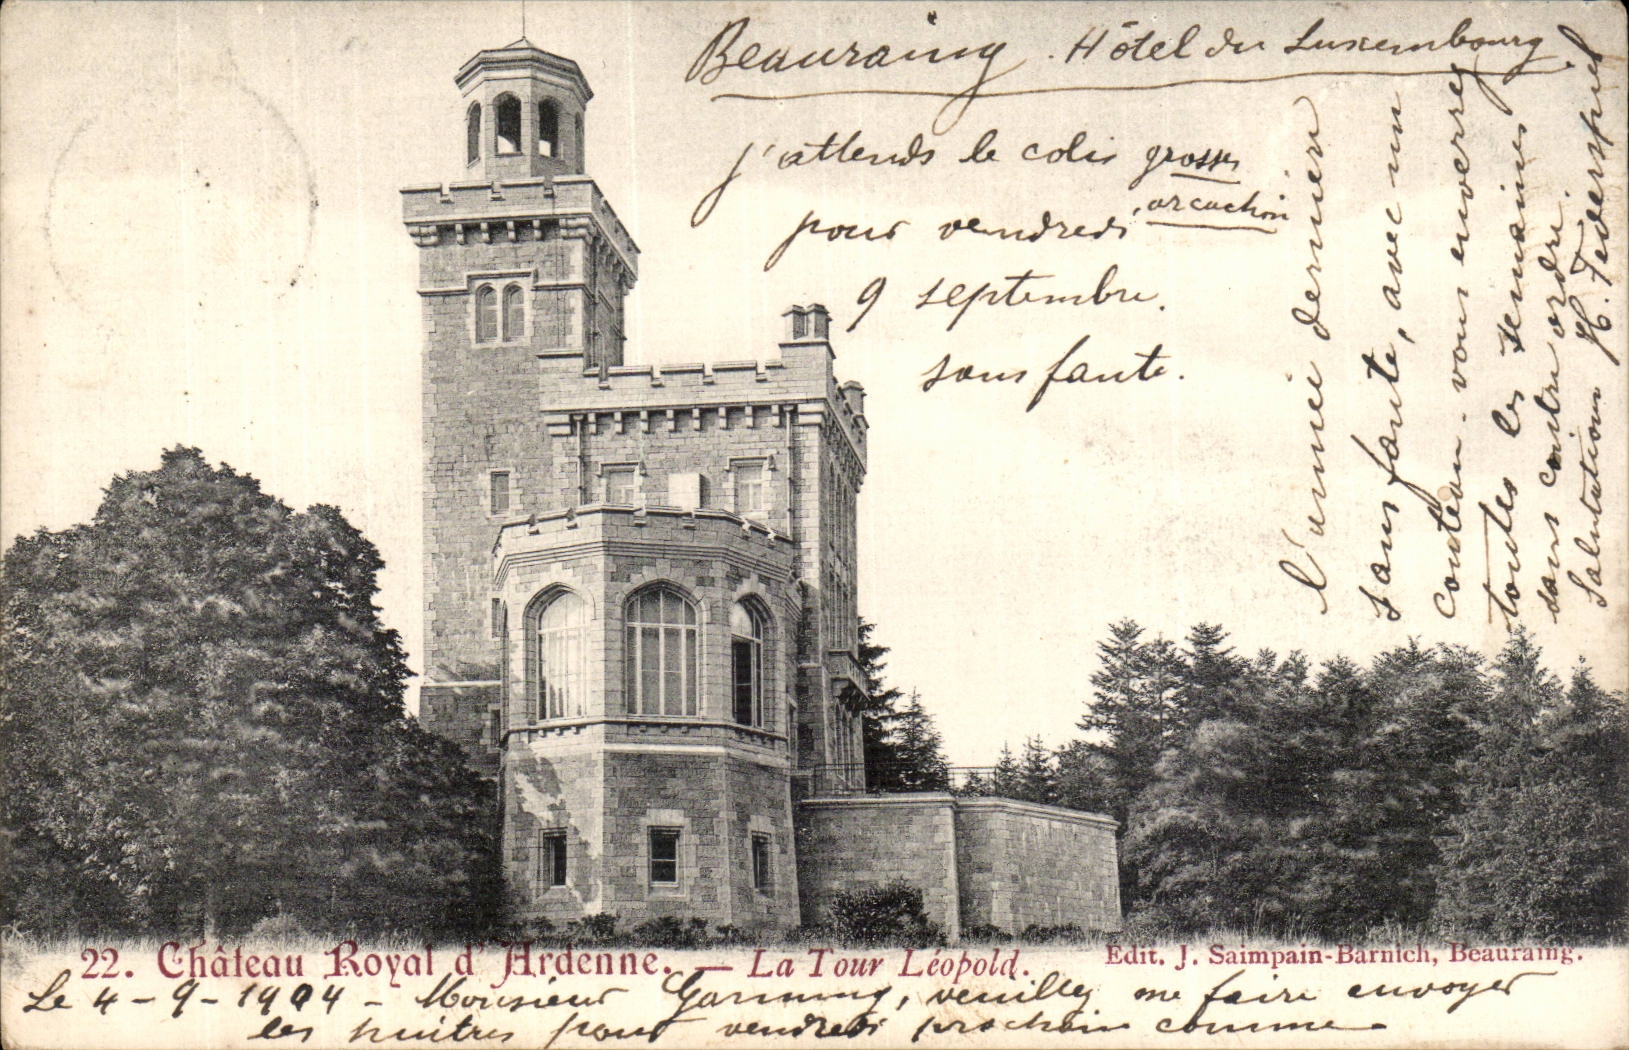 Beauraing . Hôtel du Luxembourg.
j'attends le colis grosses
arcachon
pour vendredi
9 septembre.
sans faute.
22. Château Royal d'Ardenne. — La Tour Léopold.
Edit. J. Saimpain-Barnich, Beauraing.
Le 4-9-1904 - Monsieur veuillez me faire envoyer
les huitres pour vendredi prochain comme
l'année dernière
sans faute, avec un
couteau. vous enverrez
toutes les semaines
sans contre ordre.
Salutations H. Federspiel